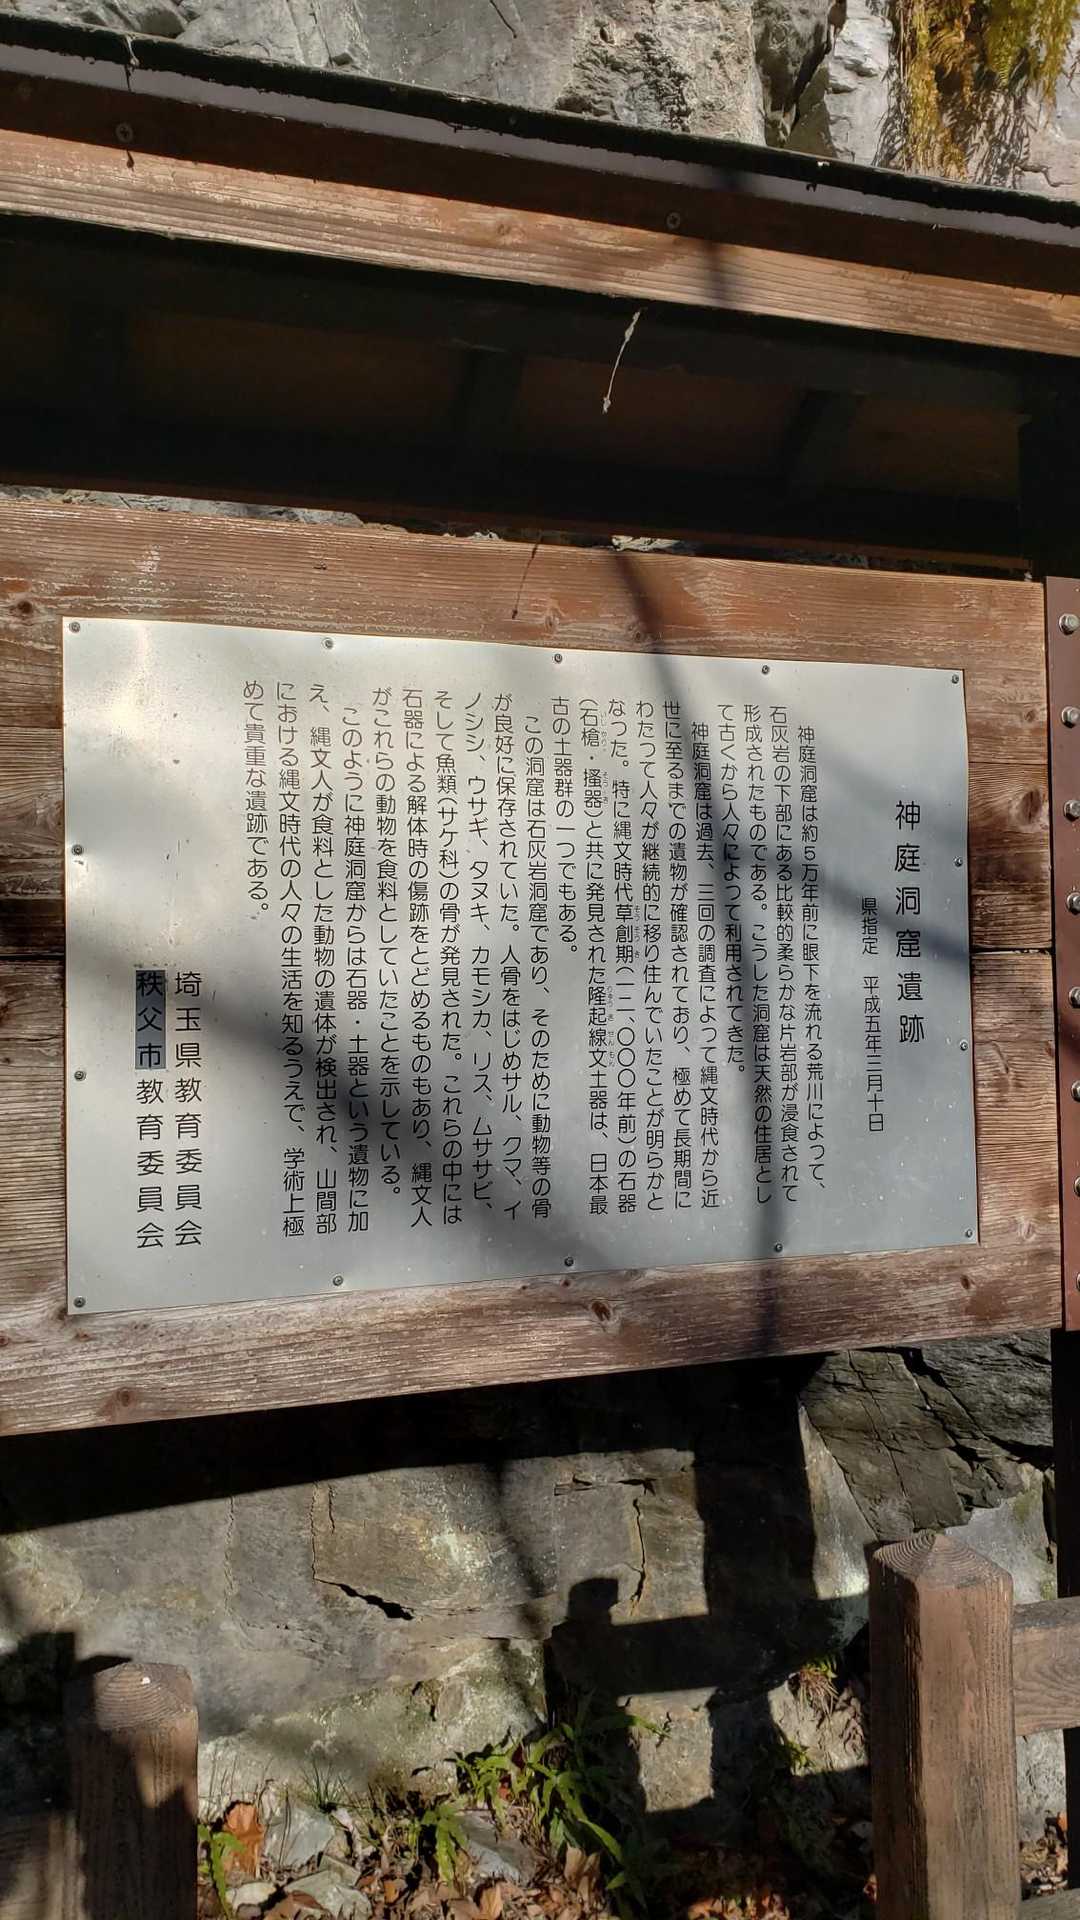 神庭洞窟遺跡
県指定　平成五年三月十日
神庭洞窟は約５万年前に眼下を流れる荒川によって、
石灰岩の下部にある比較的柔らかな片岩部が浸食されて
形成されたものである。こうした洞窟は天然の住居とし
て古くから人々によって利用されてきた。
神庭洞窟は過去、三回の調査によって縄文時代から近
世に至るまでの遺物が確認されており、極めて長期間に
わたって人々が継続的に移り住んでいたことが明らかと
なった。特に縄文時代草創期(一二、〇〇〇年前)の石器
(石槍・掻器)と共に発見された隆起線文土器は、日本最
古の土器群の一つでもある。
この洞窟は石灰岩洞窟であり、そのために動物等の骨
が良好に保存されていた。人骨をはじめサル、クマ、イ
ノシシ、ウサギ、タヌキ、カモシカ、リス、ムササビ、
そして魚類(サケ科)の骨が発見された。これらの中には
石器による解体時の傷跡をとどめるものもあり、縄文人
がこれらの動物を食料としていたことを示している。
このように神庭洞窟からは石器・土器という遺物に加
え、縄文人が食料とした動物の遺体が検出され、山間部
における縄文時代の人々の生活を知るうえで、学術上極
めて貴重な遺跡である。
埼玉県教育委員会
秩父市教育委員会